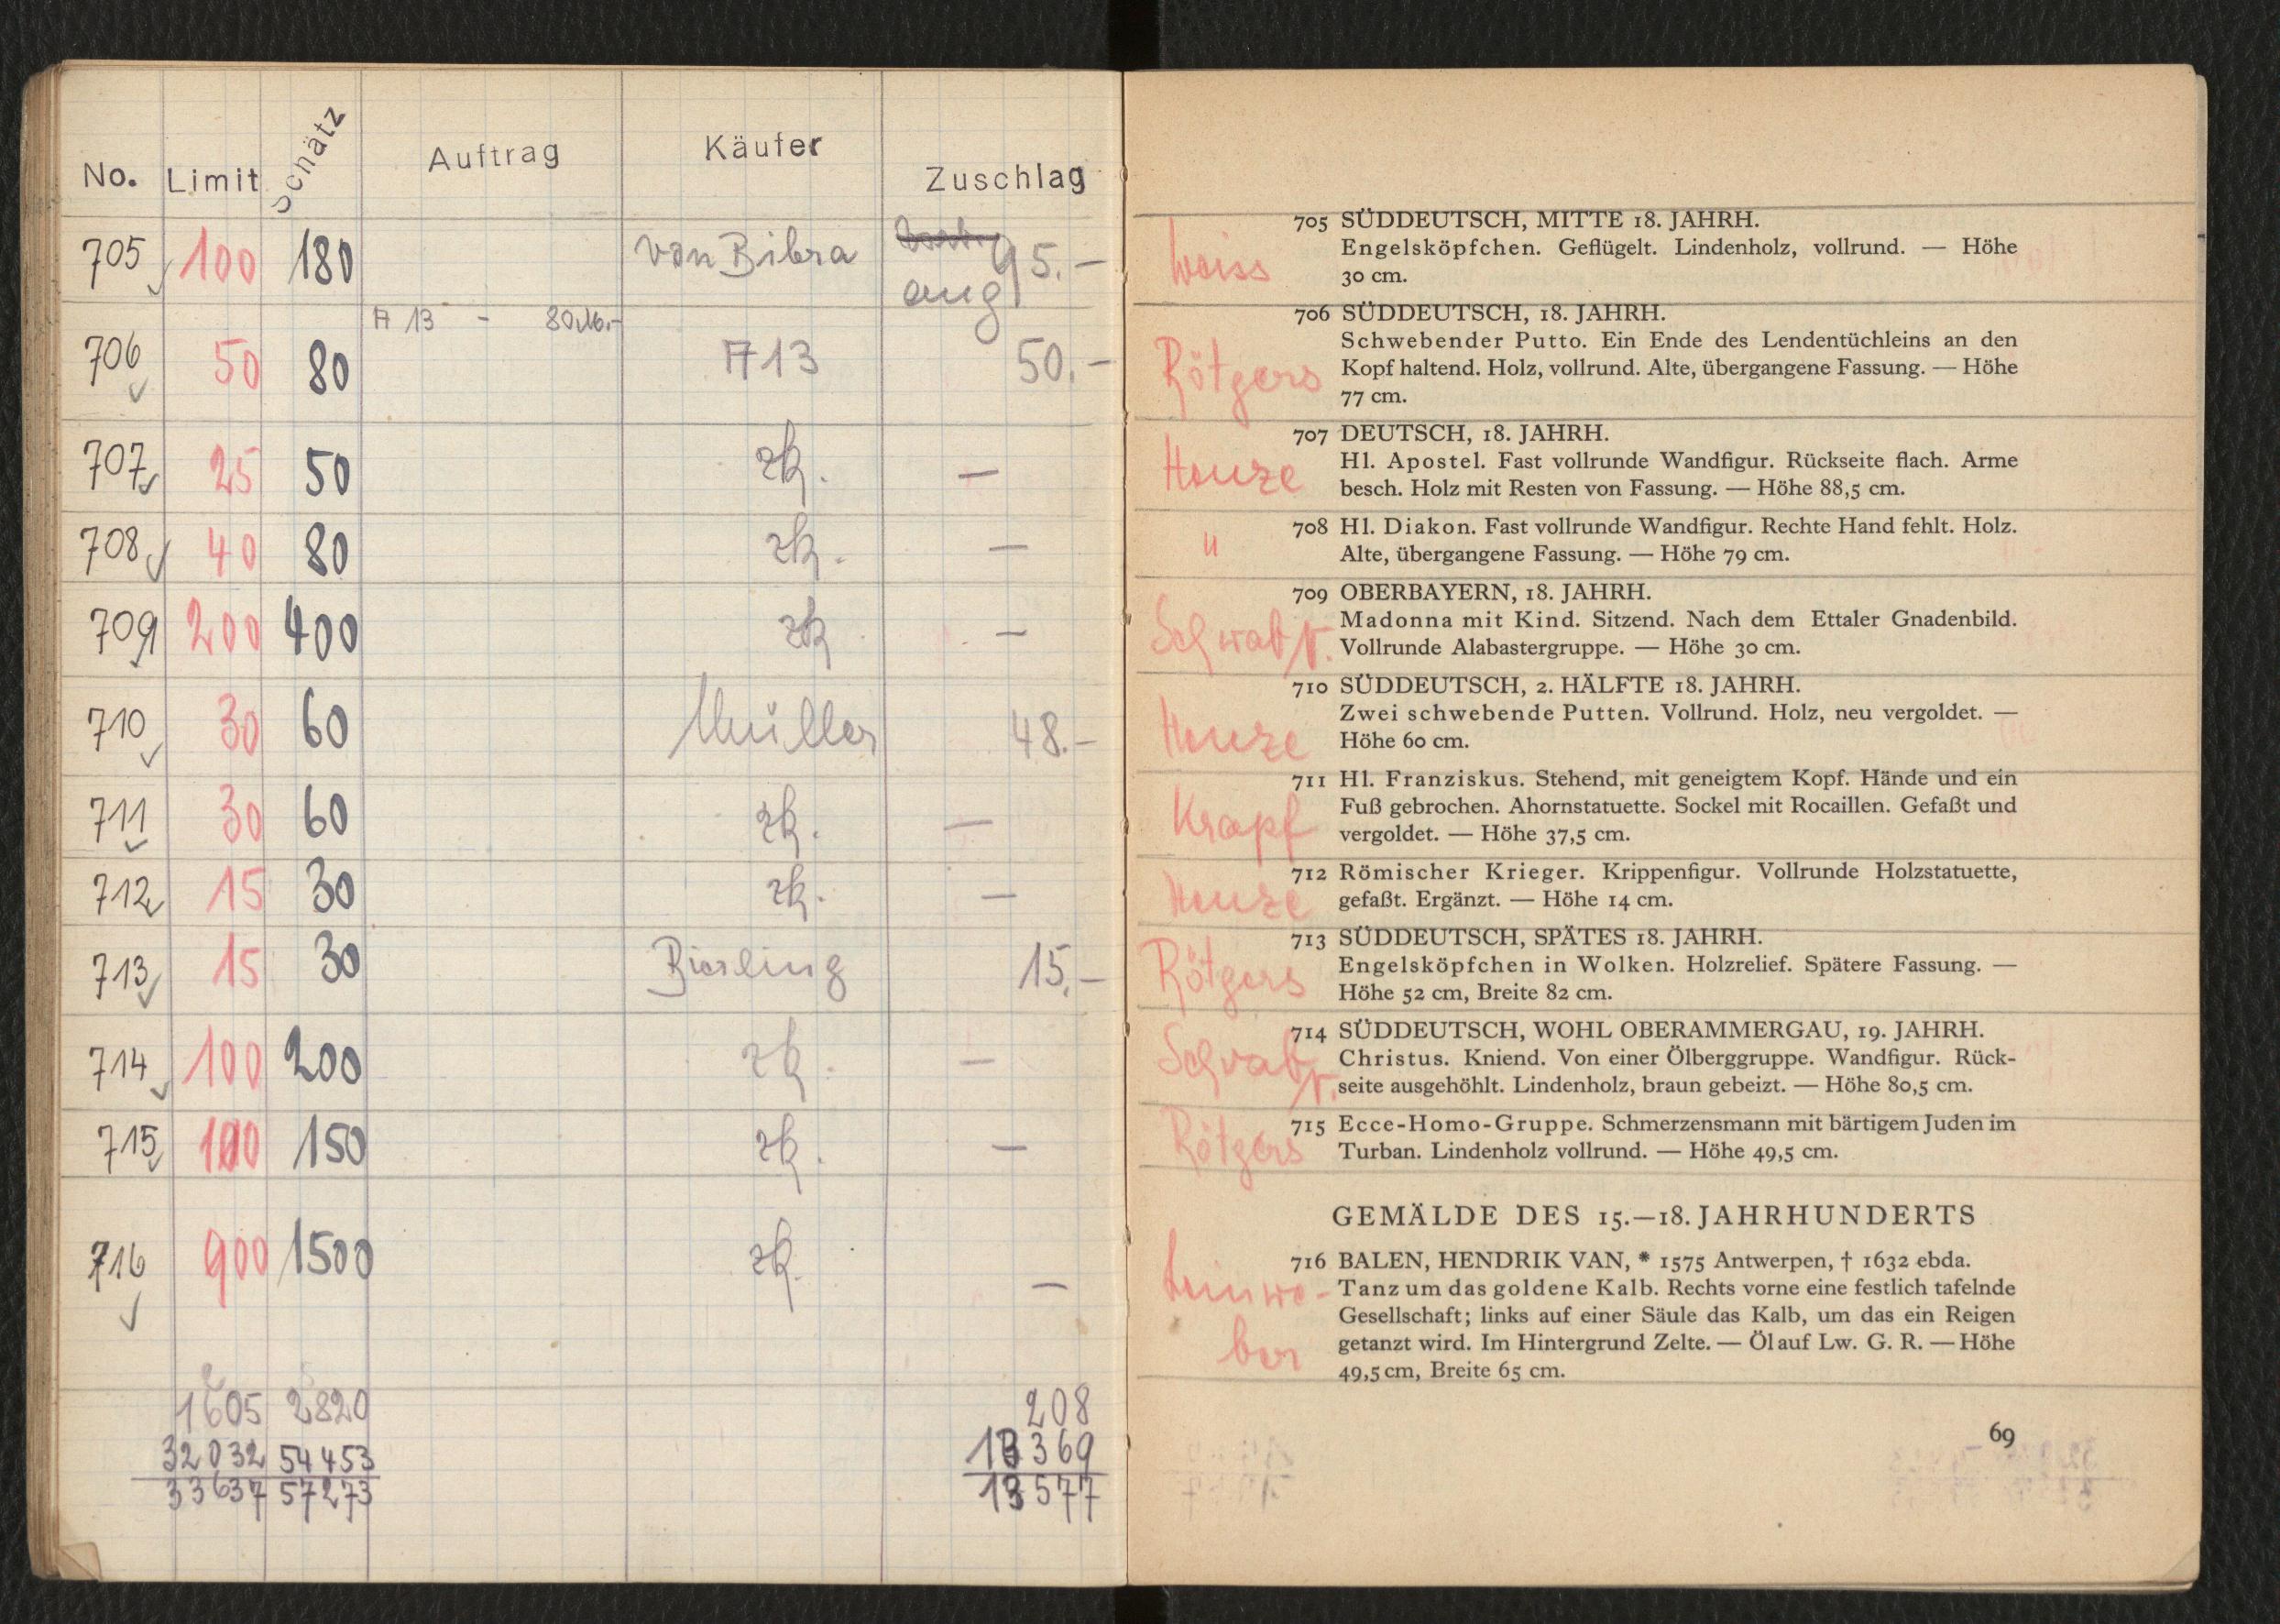 No. Limit Schätz Auftrag Käufer Zuschlag
705 100 180 von Bibra 95.—
ang
A 13 - 80 M.-
706 50 80 A 13 50.—
707 25 50 zk. —
708 40 80 zk. —
709 200 400 zk —
710 30 60 Müller 48.—
711 30 60 zk. —
712 15 30 zk. —
713 15 30 Bierling 15.—
714 100 200 zk. —
715 100 150 zk. —
716 900 1500 zk. —
1605 2820 208
32032 54453 13369
33637 57273 13577
705 SÜDDEUTSCH, MITTE 18. JAHRH.
Weiss Engelsköpfchen. Geflügelt. Lindenholz, vollrund. — Höhe
30 cm.
706 SÜDDEUTSCH, 18. JAHRH.
Schwebender Putto. Ein Ende des Lendentüchleins an den
Rötgers Kopf haltend. Holz, vollrund. Alte, übergangene Fassung. — Höhe
77 cm.
707 DEUTSCH, 18. JAHRH.
Henze Hl. Apostel. Fast vollrunde Wandfigur. Rückseite flach. Arme
besch. Holz mit Resten von Fassung. — Höhe 88,5 cm.
708 Hl. Diakon. Fast vollrunde Wandfigur. Rechte Hand fehlt. Holz.
" Alte, übergangene Fassung. — Höhe 79 cm.
709 OBERBAYERN, 18. JAHRH.
Madonna mit Kind. Sitzend. Nach dem Ettaler Gnadenbild.
Vollrunde Alabastergruppe. — Höhe 30 cm.
710 SÜDDEUTSCH, 2. HÄLFTE 18. JAHRH.
Zwei schwebende Putten. Vollrund. Holz, neu vergoldet. —
Henze Höhe 60 cm.
711 Hl. Franziskus. Stehend, mit geneigtem Kopf. Hände und ein
Krapf Fuß gebrochen. Ahornstatuette. Sockel mit Rocaillen. Gefaßt und
vergoldet. — Höhe 37,5 cm.
712 Römischer Krieger. Krippenfigur. Vollrunde Holzstatuette,
Henze gefaßt. Ergänzt. — Höhe 14 cm.
713 SÜDDEUTSCH, SPÄTES 18. JAHRH.
Rötgers Engelsköpfchen in Wolken. Holzrelief. Spätere Fassung. —
Höhe 52 cm, Breite 82 cm.
714 SÜDDEUTSCH, WOHL OBERAMMERGAU, 19. JAHRH.
Christus. Kniend. Von einer Ölberggruppe. Wandfigur. Rück-
seite ausgehöhlt. Lindenholz, braun gebeizt. — Höhe 80,5 cm.
715 Ecce-Homo-Gruppe. Schmerzensmann mit bärtigem Juden im
Rötgers Turban. Lindenholz vollrund. — Höhe 49,5 cm.
GEMÄLDE DES 15.—18. JAHRHUNDERTS
716 BALEN, HENDRIK VAN, * 1575 Antwerpen, † 1632 ebda.
Leinwe- Tanz um das goldene Kalb. Rechts vorne eine festlich tafelnde
Gesellschaft; links auf einer Säule das Kalb, um das ein Reigen
ber getanzt wird. Im Hintergrund Zelte. — Öl auf Lw. G. R. — Höhe
49,5 cm, Breite 65 cm.
69